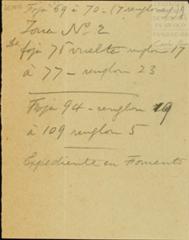 Foja 69 a 70 - (7 renglones)
Zona Nº 2
De foja 76 vuelta renglon 17
a 77 - renglon 23
Foja 94 - renglon 19
a 109 renglon 5
Expediente en Fomento